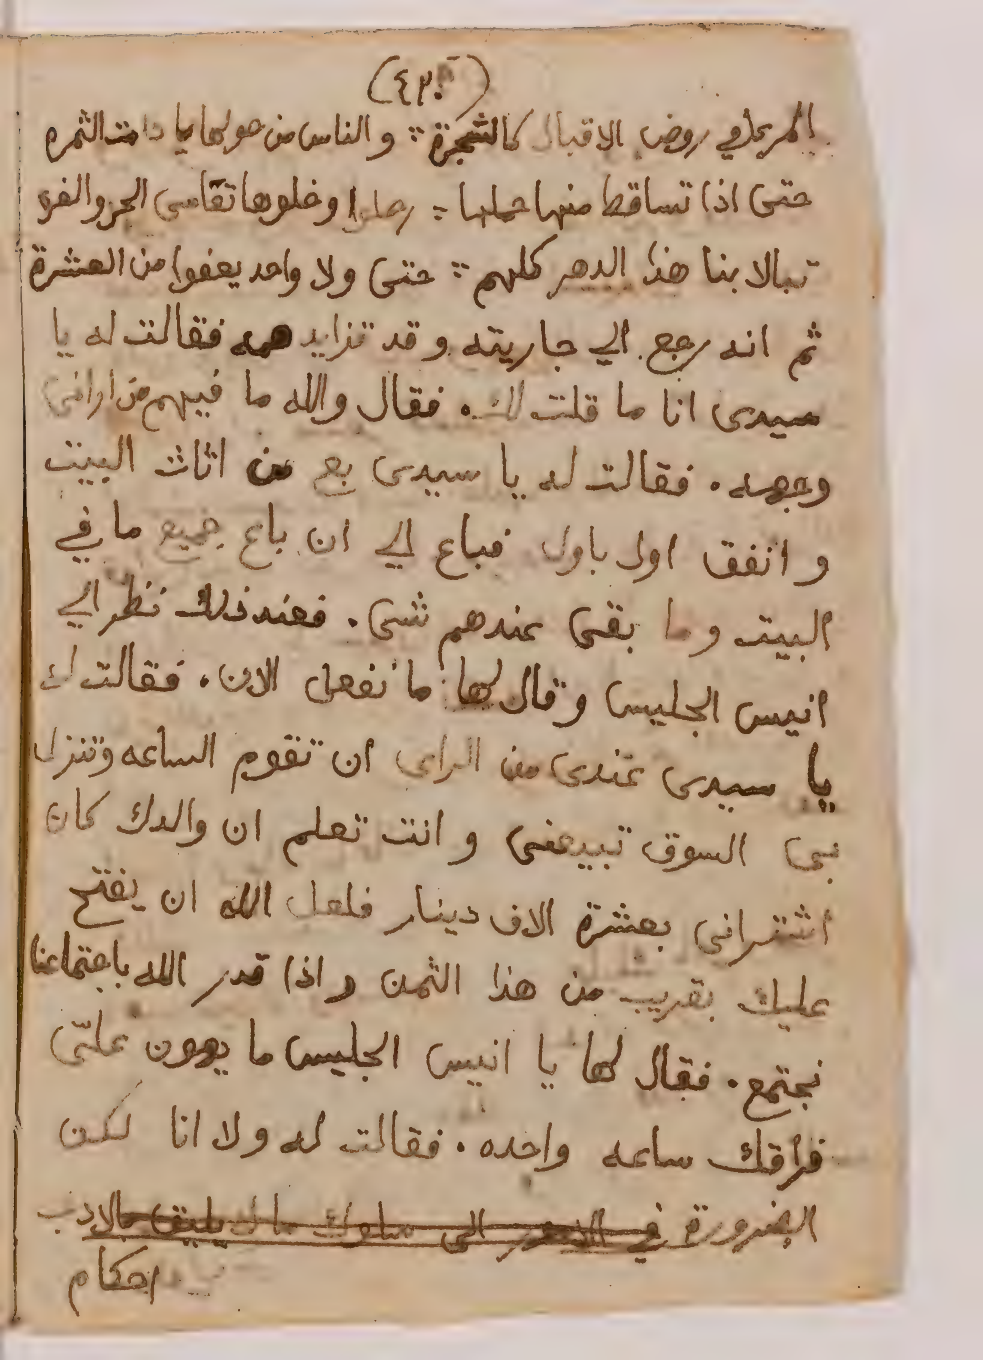 (٤٢٠)
المر في روض الاقبال كالشجرة والناس من حولها يا دامت الثمره
حتى اذا تساقط منها حملها رحلوا وخلوها تقاسى الحر والغره
تبالا بنا هذا الدهر كلهم حتى ولا واحد يعفوا من العشرة
ثم انه رجع الي جاريته وقد تزايد همه فقالت له يا
سيدى انا ما قلت لك. فقال والله ما فيهم من ارانى
وجهه. فقالت له يا سيدى بع من اثاث البيت
وانفق اول باول فباع الي ان باع جميع ما في
البيت وما بقى عندهم شى. فعند ذلك نظر الي
انيس الجليس وقال لها ما نفعل الان. فقالت له
يا سيدى عندى من الراى ان تقوم الساعه وتنزل
بى السوق تبيعنى وانت تعلم ان والدك كان
اشترانى بعشرة الاف دينار فلعل الله ان يفتح
عليك بقريب من هذا الثمن واذا قدر الله باجتماعنا
نجتمع. فقال لها يا انيس الجليس ما يهون علىّ
فراقك ساعه واحده. فقالت له ولا انا لكن
الضرورة في الى سلوك ما لا يليق بالادب
احكام